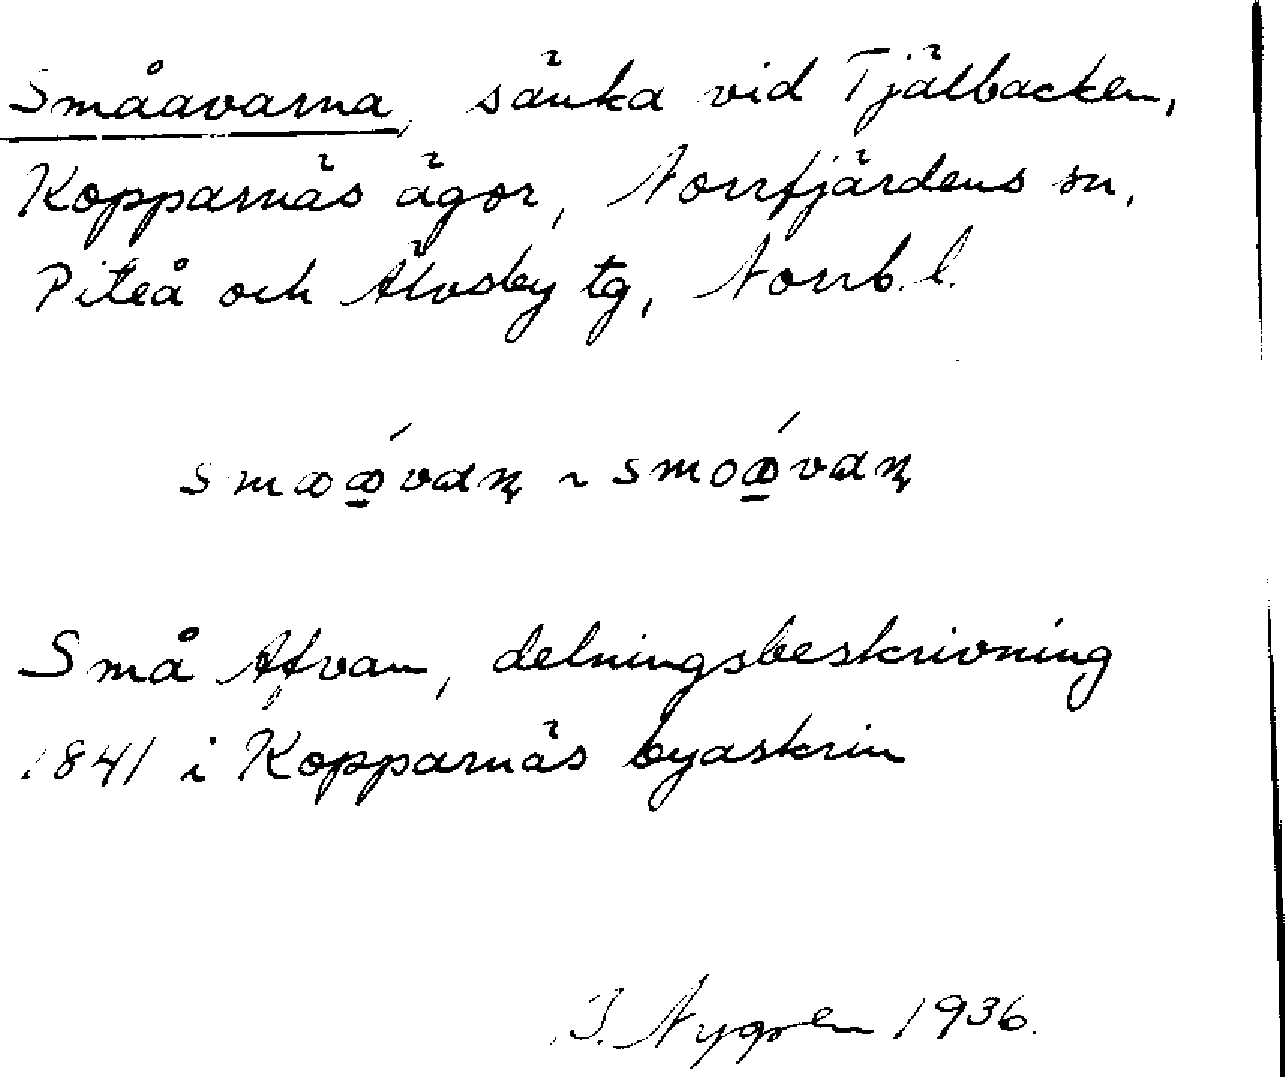 Småavarna, sänka vid Tjälbacken,
Kopparnäs ägor, Norrfjärdens sn,
Piteå och Älvsby tg, Norrb. l.
Små Afvan, delningsbeskrivning
1841 i Kopparnäs byaskrin
J. Nygren 1936.